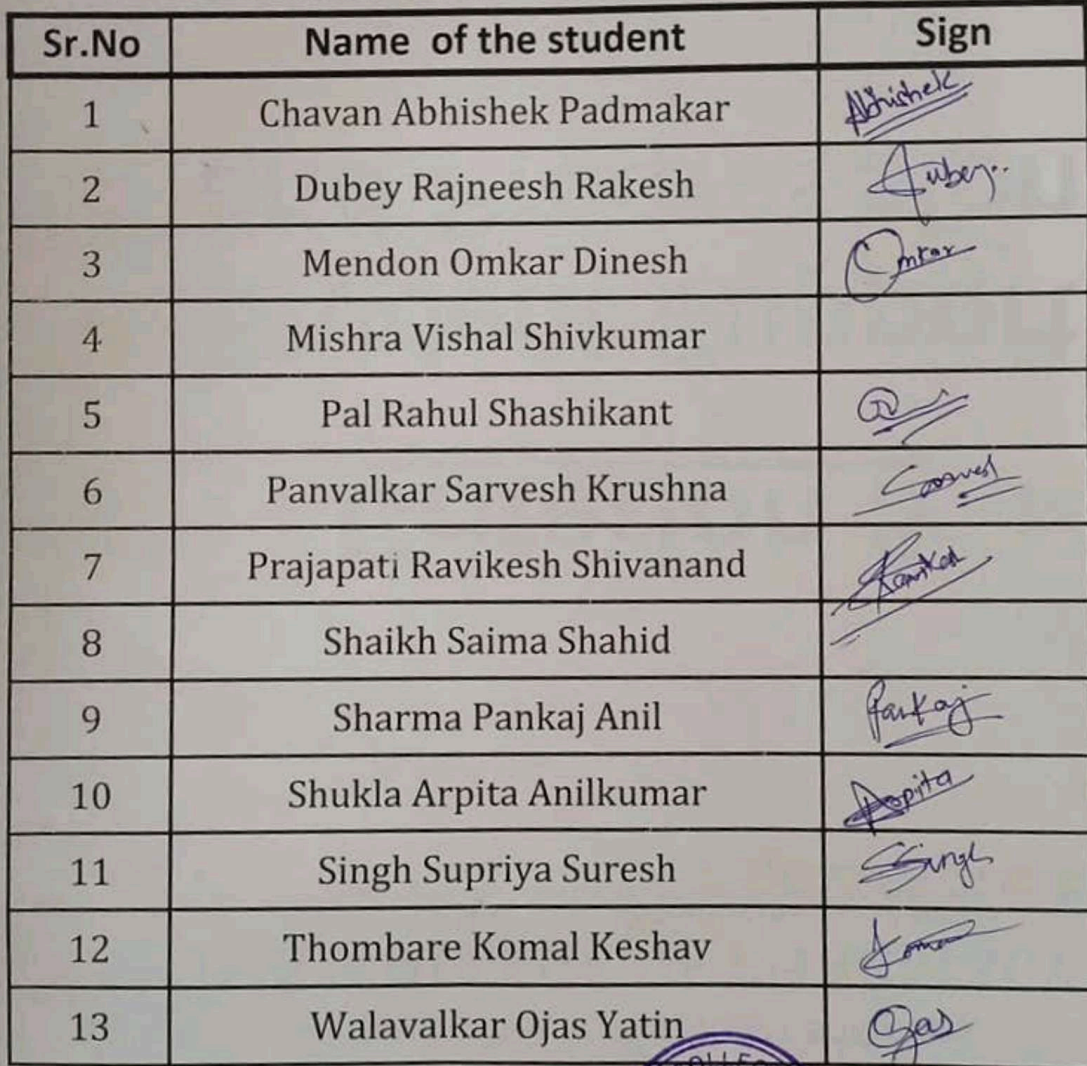 Sr.No Name of the student Sign
1 Chavan Abhishek Padmakar Abhishek
2 Dubey Rajneesh Rakesh Dubey
3 Mendon Omkar Dinesh Omkar
4 Mishra Vishal Shivkumar
5 Pal Rahul Shashikant
6 Panvalkar Sarvesh Krushna
7 Prajapati Ravikesh Shivanand
8 Shaikh Saima Shahid
9 Sharma Pankaj Anil Pankaj
10 Shukla Arpita Anilkumar Arpita
11 Singh Supriya Suresh SSingh
12 Thombare Komal Keshav
13 Walavalkar Ojas Yatin Ojas